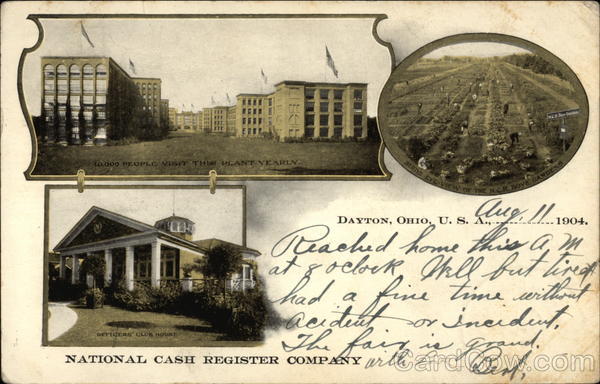 40,000 PEOPLE VISIT THIS PLANT YEARLY.
VIEW OF THE N.C.R. BOYS' GARDENS
OFFICERS' CLUB HOUSE
NATIONAL CASH REGISTER COMPANY
DAYTON, OHIO, U. S. A., Aug. 11 1904.
Reached home this A.M
at 8 oclock Well but tired
had a fine time without
accident or incident.
The fair is grand.
CardCow.com